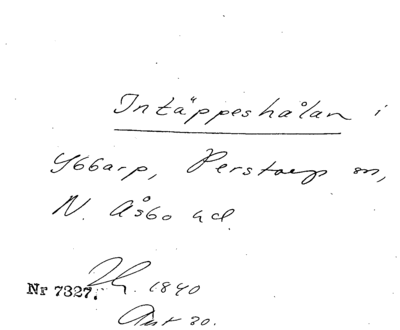 Intäppeshålan i
Ybbarp, Perstorp sn,
N. Åsbo hd.
Nr 7327. Th. 1840
Ant 30.